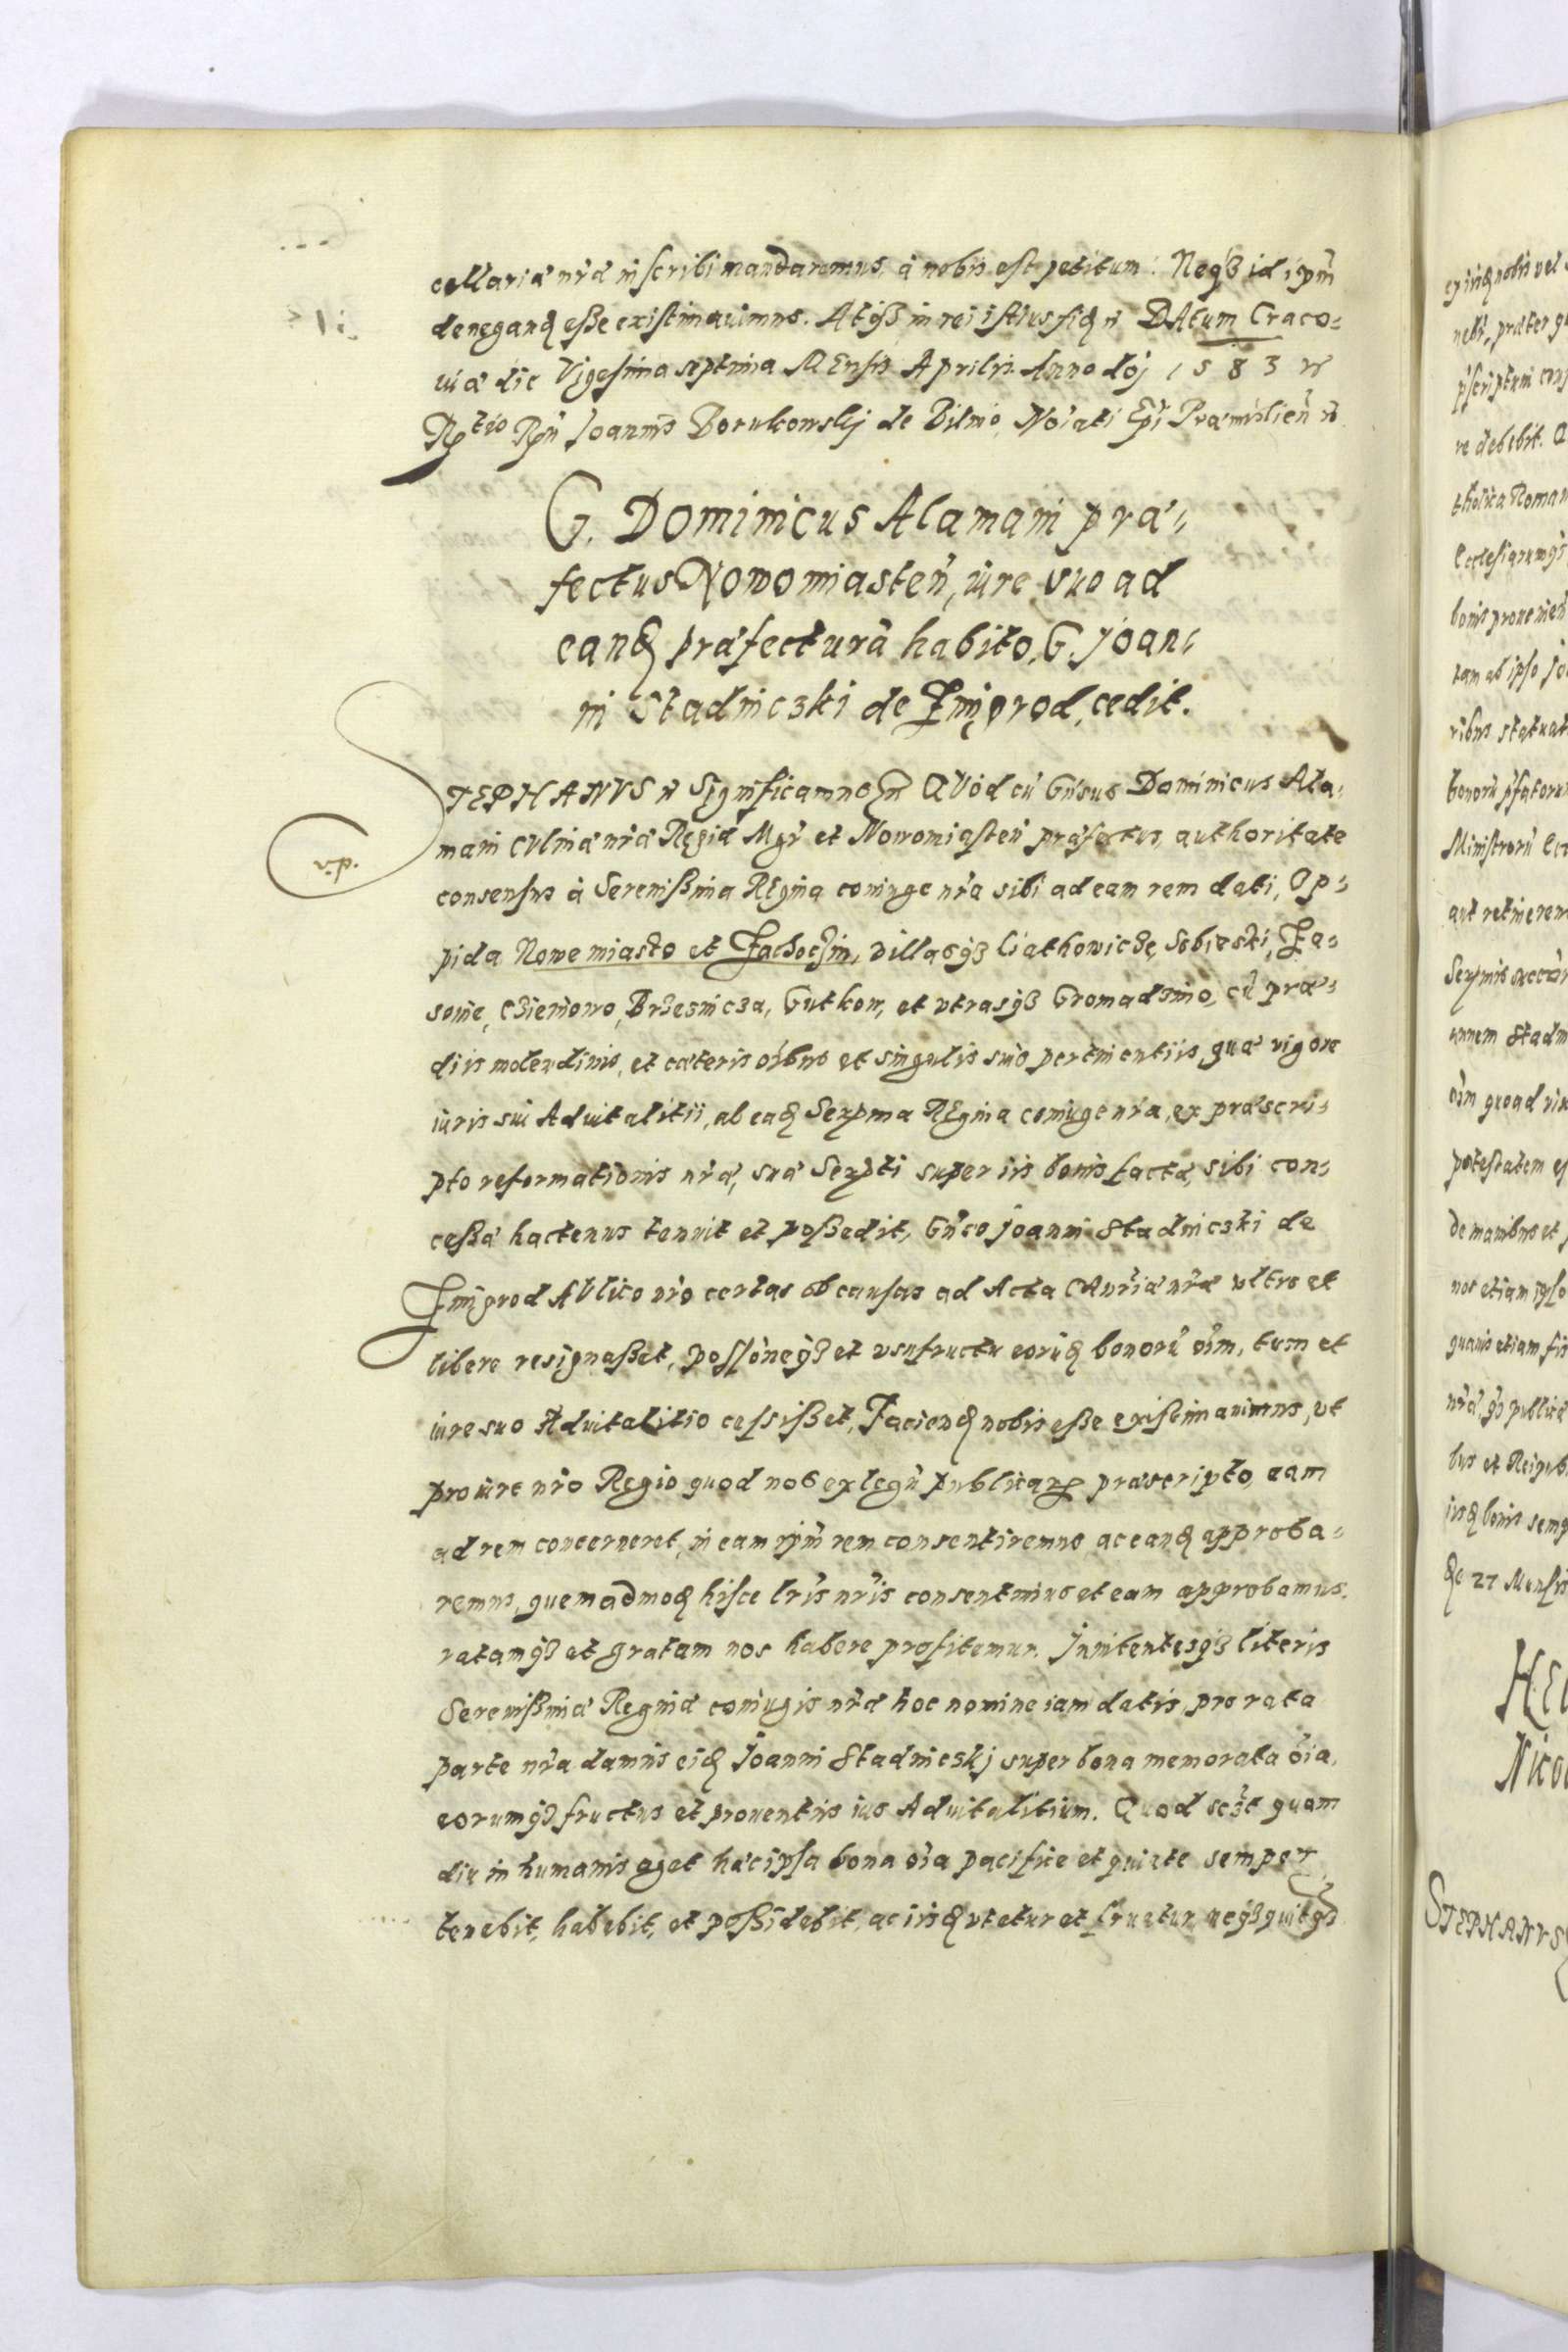 cellaria nrã inscribi mandaremus, à nobis est petitum. Neqз id ipm̃
denegandꝫ eße existimauimus. Atqз in rei istius fidꝫ ꝛc DAtum Craco-
uiæ die Vigesima septima MEnsis Aprilis Anno dnj 1583 ꝛc
Rtio Rñ Joannis Borukowskj de Bilino, Noiati Epi Præmislień ꝛc
G. Dominicus Alamani præ-
fectus Nowomiasteń, iure suo ad
eandꝫ præfecturã habito, G. Joan-
ni Stadniczki de Zmigrod, cedit.
STEPHANVS ꝛc Significamus ꝛc QVod cũ Gńsus Dominicus Ala-
mani CVlinæ nræ Regiæ Mgr̃ et Nowomiasteń præfectus, authoritate
v.p.
consensus à Serenißima REgina coniuge nr̃a sibi ad eam rem dati, Op-
pida Nowe miasto et Zachoczin, villasqз Liathowicze, Sobieski, Za-
sonie, Cziemowo, Brzesnicza, Gutkow, et vtrasqз Gromadzino, cũ præ-
diis molendinis, et cæteris oĩbus et singulis suis pertinentiis, quæ vigore
iuris sui Aduitalitii, ab eadꝫ Serma REgina coniuge nr̃a, ex præscri-
pto reformationis nræ, suæ Serti super iis bonis factæ, sibi con-
ceßa hactenus tenuit et poßedit, Gńso Joanni Stadniczki de
Zmigrod AVlico nr̃o certas ob causas ad Acta CAnriæ nræ vltro et
libere resignaßet, possõneqз et vsufructu eorũdꝫ bonorũ oĩm, tum et
iure suo Aduitalitio cessißet, Faciendꝫ nobis eße existimauimus, vt
pro iure nr̃o Regio quod nos ex legũ publicarꝝ præscripto, eam
ad rem concerneret, in eam ipm̃ rem consentiremus, ac eandꝫ approba-
remus, quemadmodꝫ hisce lr̃is nr̃is consentimus et eam approbamus.
ratamqз et gratam nos habere profitemur. Innitentesqз literis
Serenißimæ Reginæ coniugis nræ hoc nomine iam datis, pro rata
parte nr̃a damus eidꝫ Joanni Stadnicskj super bona memorata oĩa,
eorumqз fructus et prouentus ius Aduitalitium. Quod sczt quam
diu in humanis aget hæc ipsa bona oĩa pacifice et quiete semper
tenebit, habebit, et poßidebit, ac iisdꝫ vtetur et fruetur, neqз quitqз